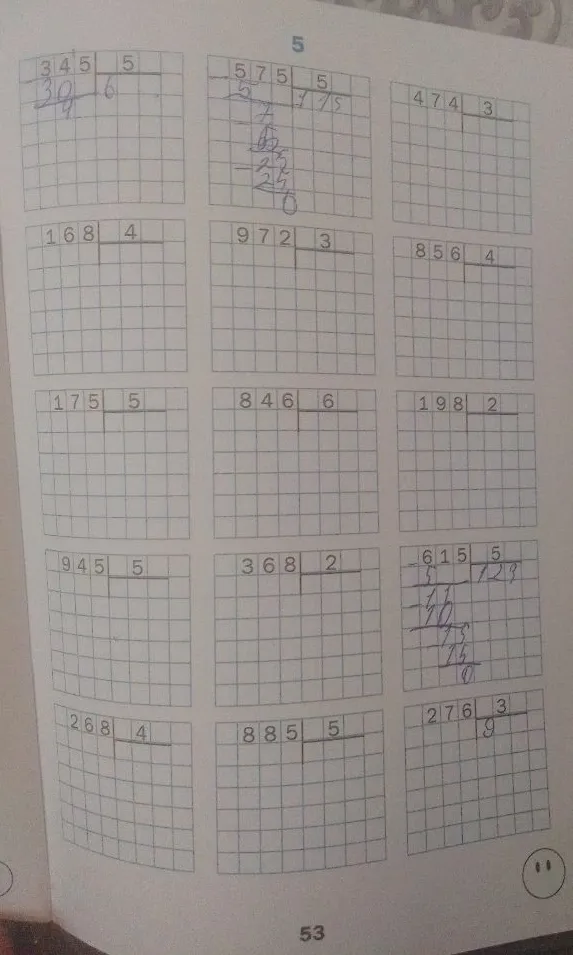 5
345 5
30 6
4
575 5
5 115
7
5
25
25
0
474 3
168 4
972 3
856 4
175 5
846 6
198 2
945 5
368 2
615 5
5 123
11
10
15
15
0
268 4
885 5
276 3
9
53